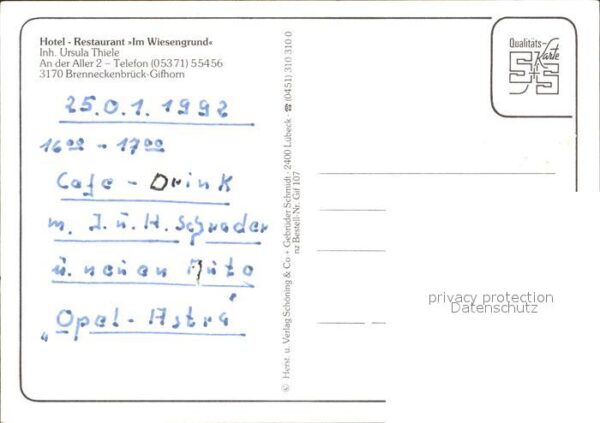 Hotel - Restaurant »Im Wiesengrund«
Inh. Ursula Thiele
An der Aller 2 – Telefon (05371) 55456
3170 Brenneckenbrück-Gifhorn
Qualitäts-
Karte
S+S
25.01.1992
16°° - 17°°
Cafe - Drink
m. J. u. H. Schrader
u. neuen Auto
„Opel-Astra"
© Herst. u. Verlag Schöning & Co + Gebrüder Schmidt · 2400 Lübeck · ☎ (0451) 310 310 0
nz Bestell-Nr. Gif 107
privacy protection
Datenschutz